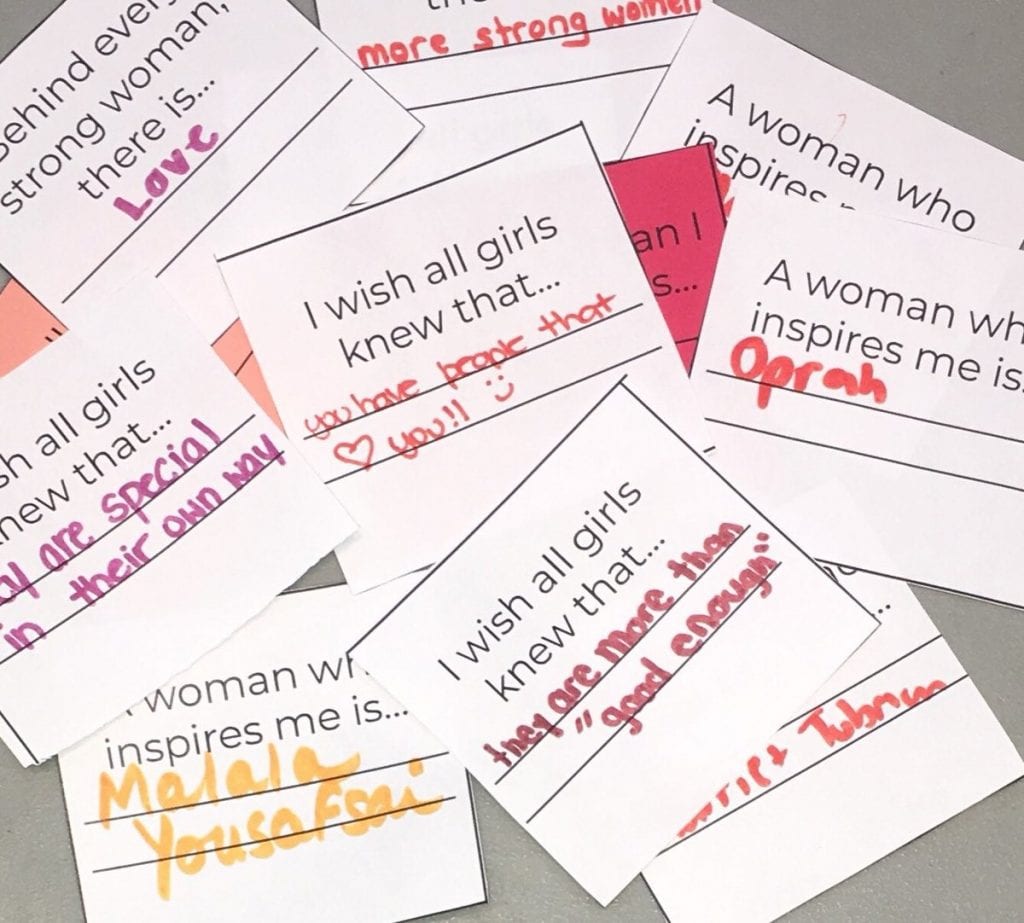 Behind every
strong woman,
there is...
Love
more strong women
A woman who
inspires
I wish all girls
knew that...
you have people that
♡ you!! :)
an I
s...
A woman wh
inspires me is.
Oprah
sh all girls
new that...
ey are special
in their own way
I wish all girls
knew that...
they are more than
"good enough"
woman wh
inspires me is...
Malala
Yousafsai
...
Tubman